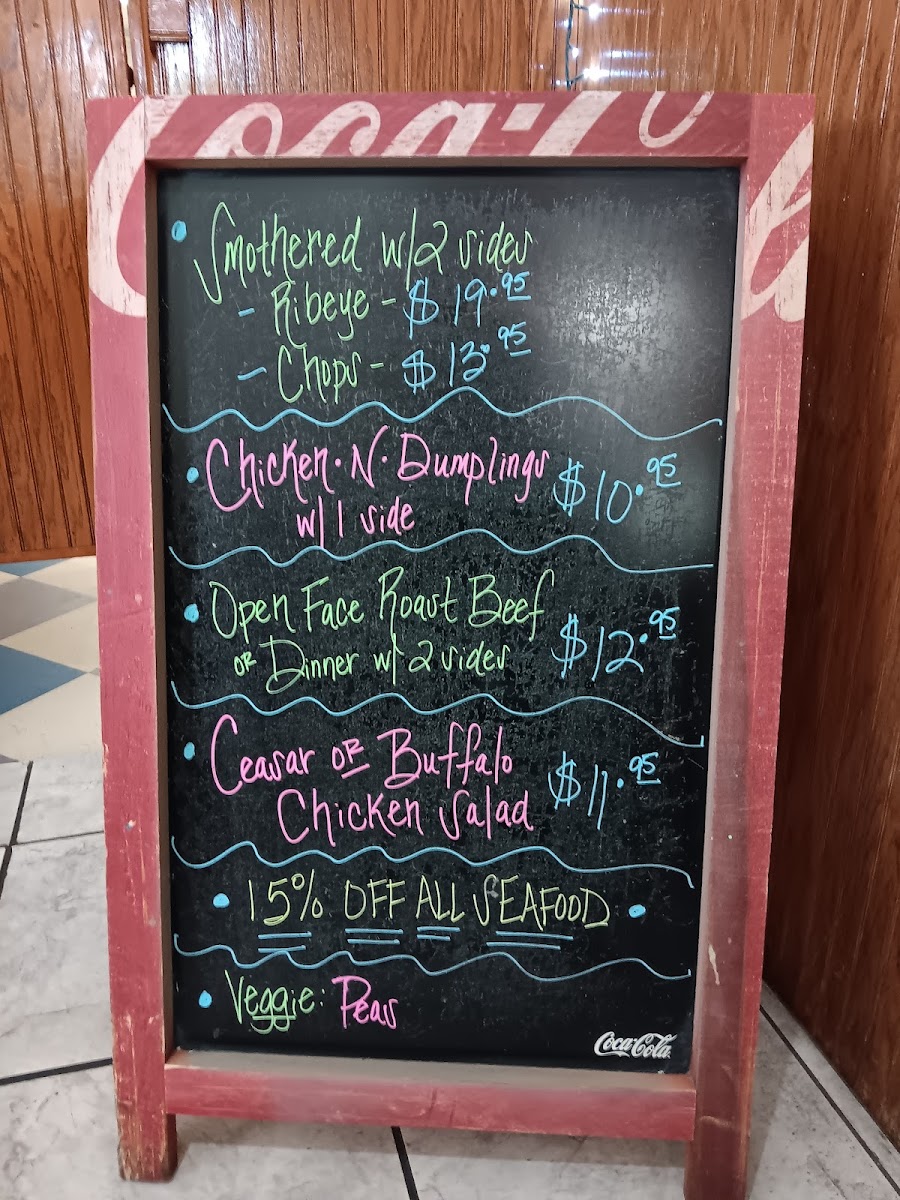 Coca-Co
Smothered w/2 sides
- Ribeye - $19.95
- Chops - $13.95
Chicken·N·Dumplings $10.95
w/1 side
Open Face Roast Beef
or Dinner w/ 2 sides $12.95
Ceasar OR Buffalo $11.95
Chicken Salad
15% OFF ALL SEAFOOD
Veggie: Peas
Coca-Cola